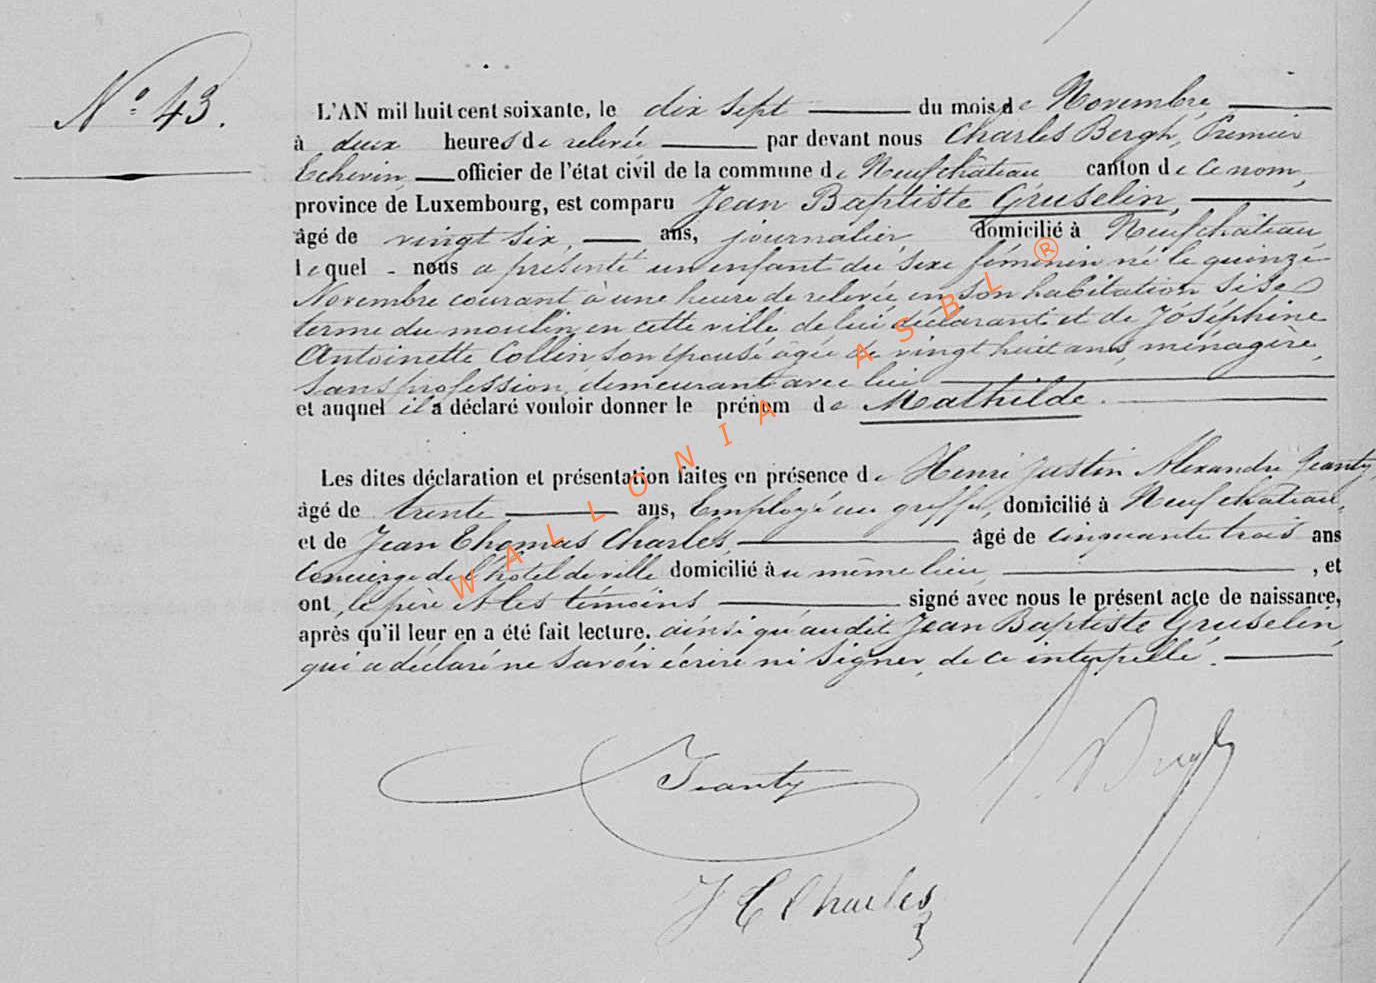 N° 43.
L'AN mil huit cent soixante, le dix sept du mois de Novembre,
à deux heures de relevée par devant nous Charles Bergh, Premier
Echevin, officier de l'état civil de la commune de Neufchâteau canton de ce nom,
province de Luxembourg, est comparu Jean Baptiste Gruselin,
âgé de vingt six, ans, journalier, domicilié à Neufchâteau
lequel - nous a présenté un enfant du sexe féminin né le quinze
Novembre courant à une heure de relevée en son habitation sise
terme du moulin, en cette ville, de lui déclarant et de Joséphine
Antoinette Collin, son épouse âgée de vingt huit ans, ménagère,
sans profession, demeurant avec lui
et auquel il a déclaré vouloir donner le prénom de Mathilde.
Les dites déclaration et présentation faites en présence de Henri Justin Alexandre Jeanty,
âgé de trente ans, Employé au greffe, domicilié à Neufchâteau,
et de Jean Thomas Charles, âgé de cinquante trois ans
Concierge de l'hôtel de ville domicilié au même lieu, , et
ont, le père et les témoins signé avec nous le présent acte de naissance,
après qu'il leur en a été fait lecture. ainsi qu'au dit Jean Baptiste Gruselin
qui a déclaré ne savoir écrire ni signer, de ce interpellé.
Jeanty
J T Charles
WALLONIA ASBL ®